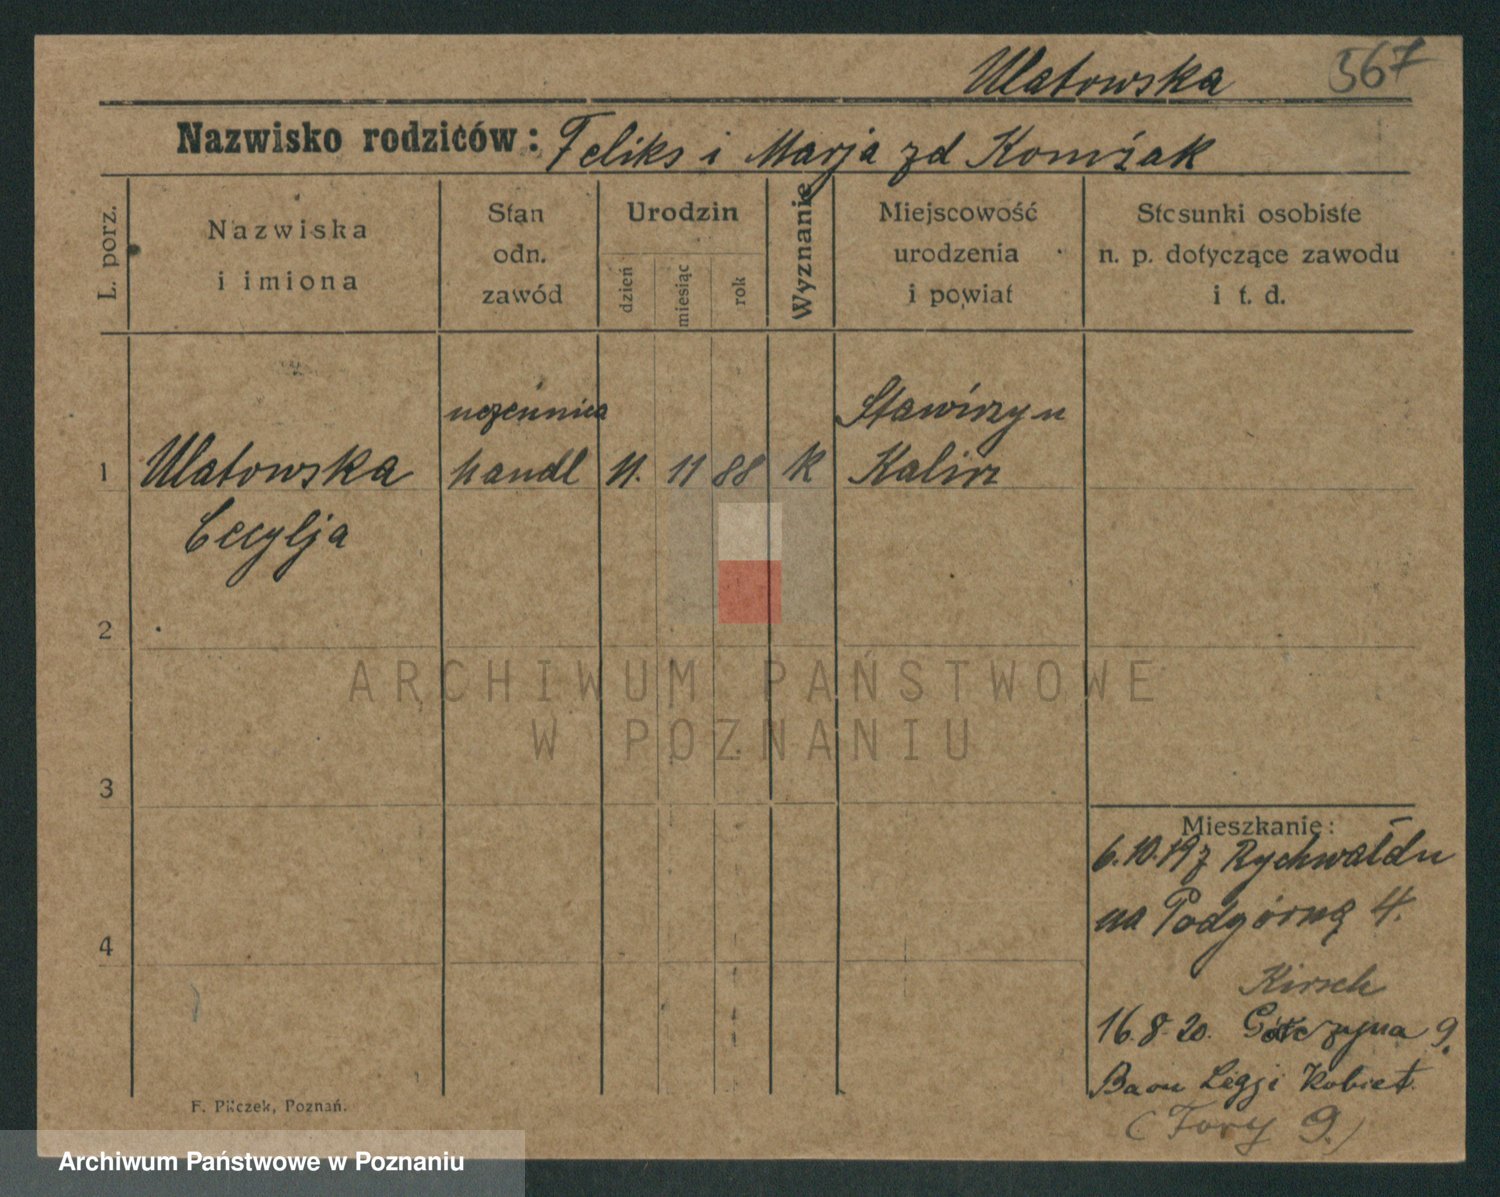 Ulatowska 567
Nazwisko rodziców: Feliks i Marja zd Komżak
L. porz.
Nazwiska
i imiona
Stan
odn.
zawód
Urodzin
dzień
miesiąc
rok
Wyznanie
Miejscowość
urodzenia
i powiat
Stosunki osobiste
n. p. dotyczące zawodu
i t. d.
uczennica
Stawiszyn
1 Ulatowska handl 11. 11 88 k Kalisz
Cecylja
2
3
4
Mieszkanie:
6.10.19 z Rychwałdu
na Podgórną 4.
Kirsch
16.8.20. 9.
Baon Legji Kobiet.
(Tory 9.)
F. Pilczek, Poznań.
ARCHIWUM PAŃSTWOWE
W POZNANIU
Archiwum Państwowe w Poznaniu